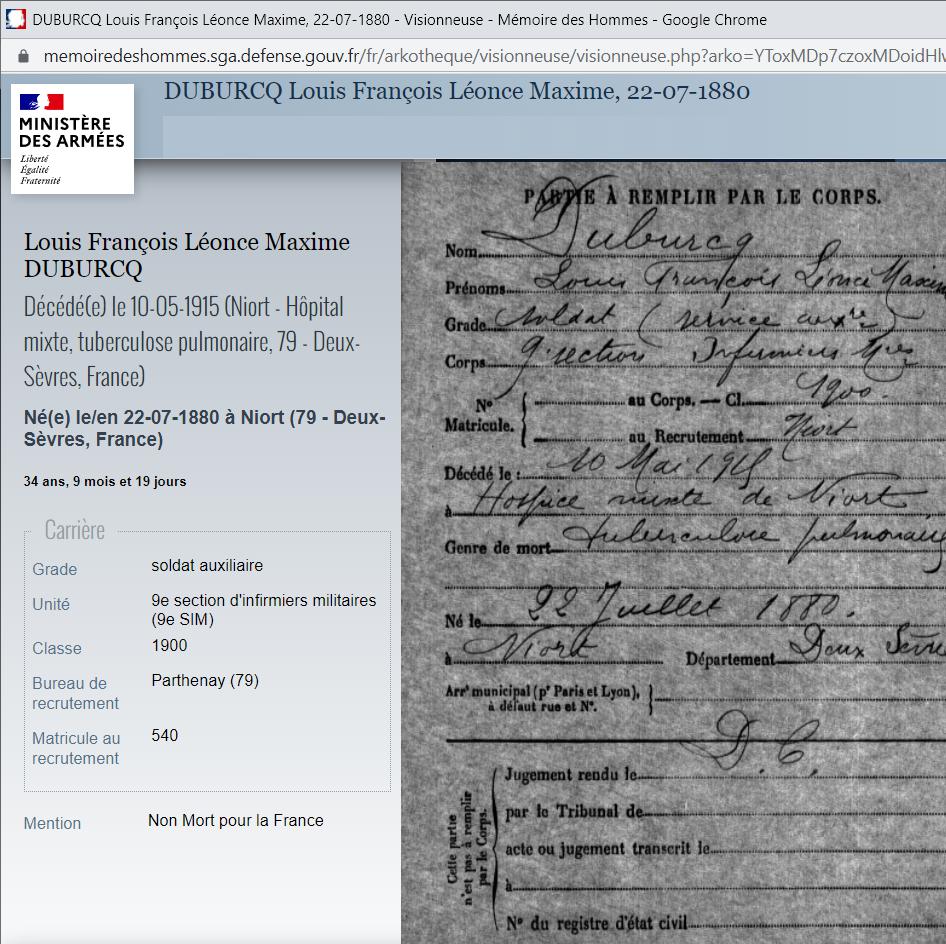 DUBURCQ Louis François Léonce Maxime, 22-07-1880 - Visionneuse - Mémoire des Hommes - Google Chrome
memoiredeshommes.sga.defense.gouv.fr/fr/arkotheque/visionneuse/visionneuse.php?arko=YToxMDp7czoxMDoidHlw
DUBURCQ Louis François Léonce Maxime, 22-07-1880
MINISTÈRE
DES ARMÉES
Liberté
Égalité
Fraternité
Louis François Léonce Maxime
DUBURCQ
Décédé(e) le 10-05-1915 (Niort - Hôpital
mixte, tuberculose pulmonaire, 79 - Deux-
Sèvres, France)
Né(e) le/en 22-07-1880 à Niort (79 - Deux-
Sèvres, France)
34 ans, 9 mois et 19 jours
Carrière
Grade soldat auxiliaire
Unité 9e section d'infirmiers militaires
(9e SIM)
Classe 1900
Bureau de recrutement Parthenay (79)
Matricule au recrutement 540
Mention Non Mort pour la France
PARTIE À REMPLIR PAR LE CORPS.
Nom Duburcq
Prénoms Louis François Léonce Maxime
Grade Soldat (service auxre)
Corps 9e section Infirmiers Mres
No Matricule. au Corps. — Cl. 1900.
au Recrutement Niort
Décédé le : 10 Mai 1915
à Hospice mixte de Niort
Genre de mort tuberculose pulmonaire
Né le 22 Juillet 1880.
à Niort Département Deux Sèvres
Arrt municipal (pr Paris et Lyon),
à défaut rue et No.
D. C.
Cette partie
n'est pas à remplir
par le Corps.
Jugement rendu le
par le Tribunal de
acte ou jugement transcrit le
à
No du registre d'état civil